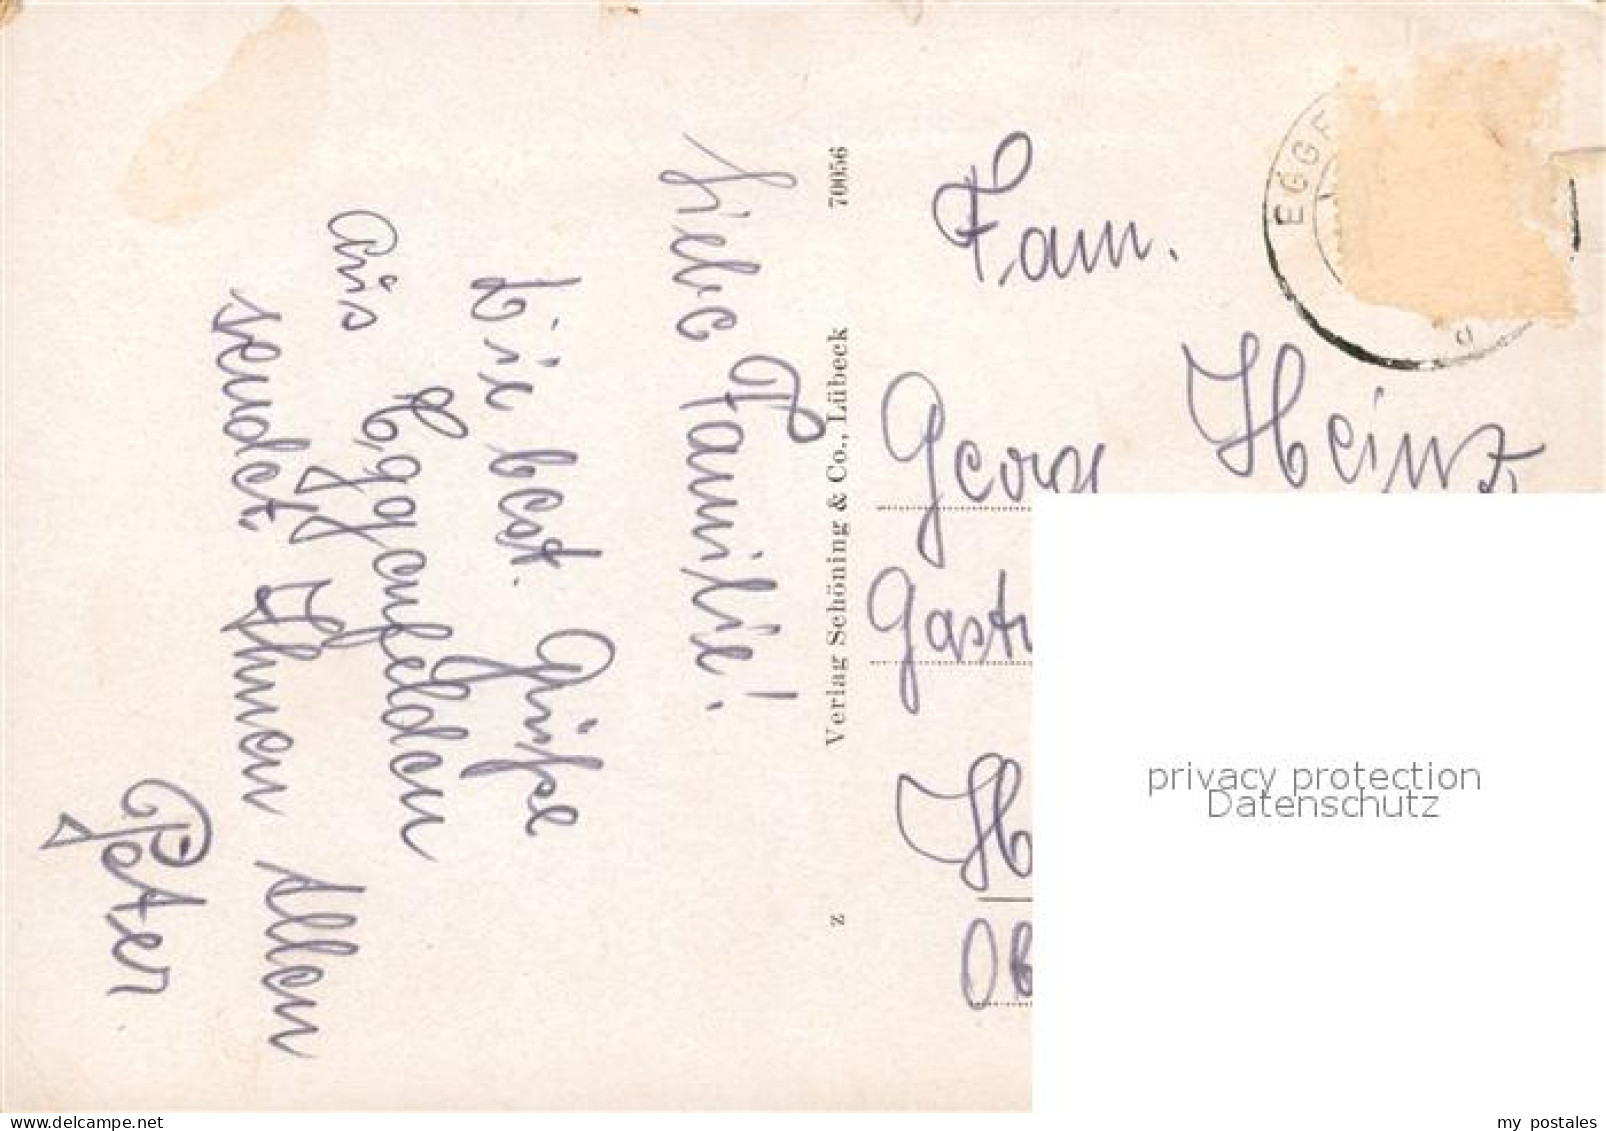 Liebe Familie!
Die best. Grüße
aus Eggenfelden
sendet Ihnen Allen
Peter
70056
Verlag Schöning & Co., Lübeck
Z
EGGF
d
Fam.
Georg Heinz
Gast
H
Ob
privacy protection
Datenschutz
www.delcampe.net
my postales